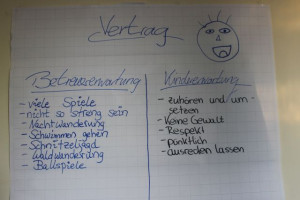 Vertrag
Betreuererwartung
- viele Spiele
- nicht so streng sein
- Nachtwanderung
- Schwimmen gehen
- Schnitzeljagd
- Waldwanderung
- Ballspiele
Kinderwartung
- zuhören und um-
setzen
- Keine Gewalt
- Respekt
- pünktlich
- ausreden lassen